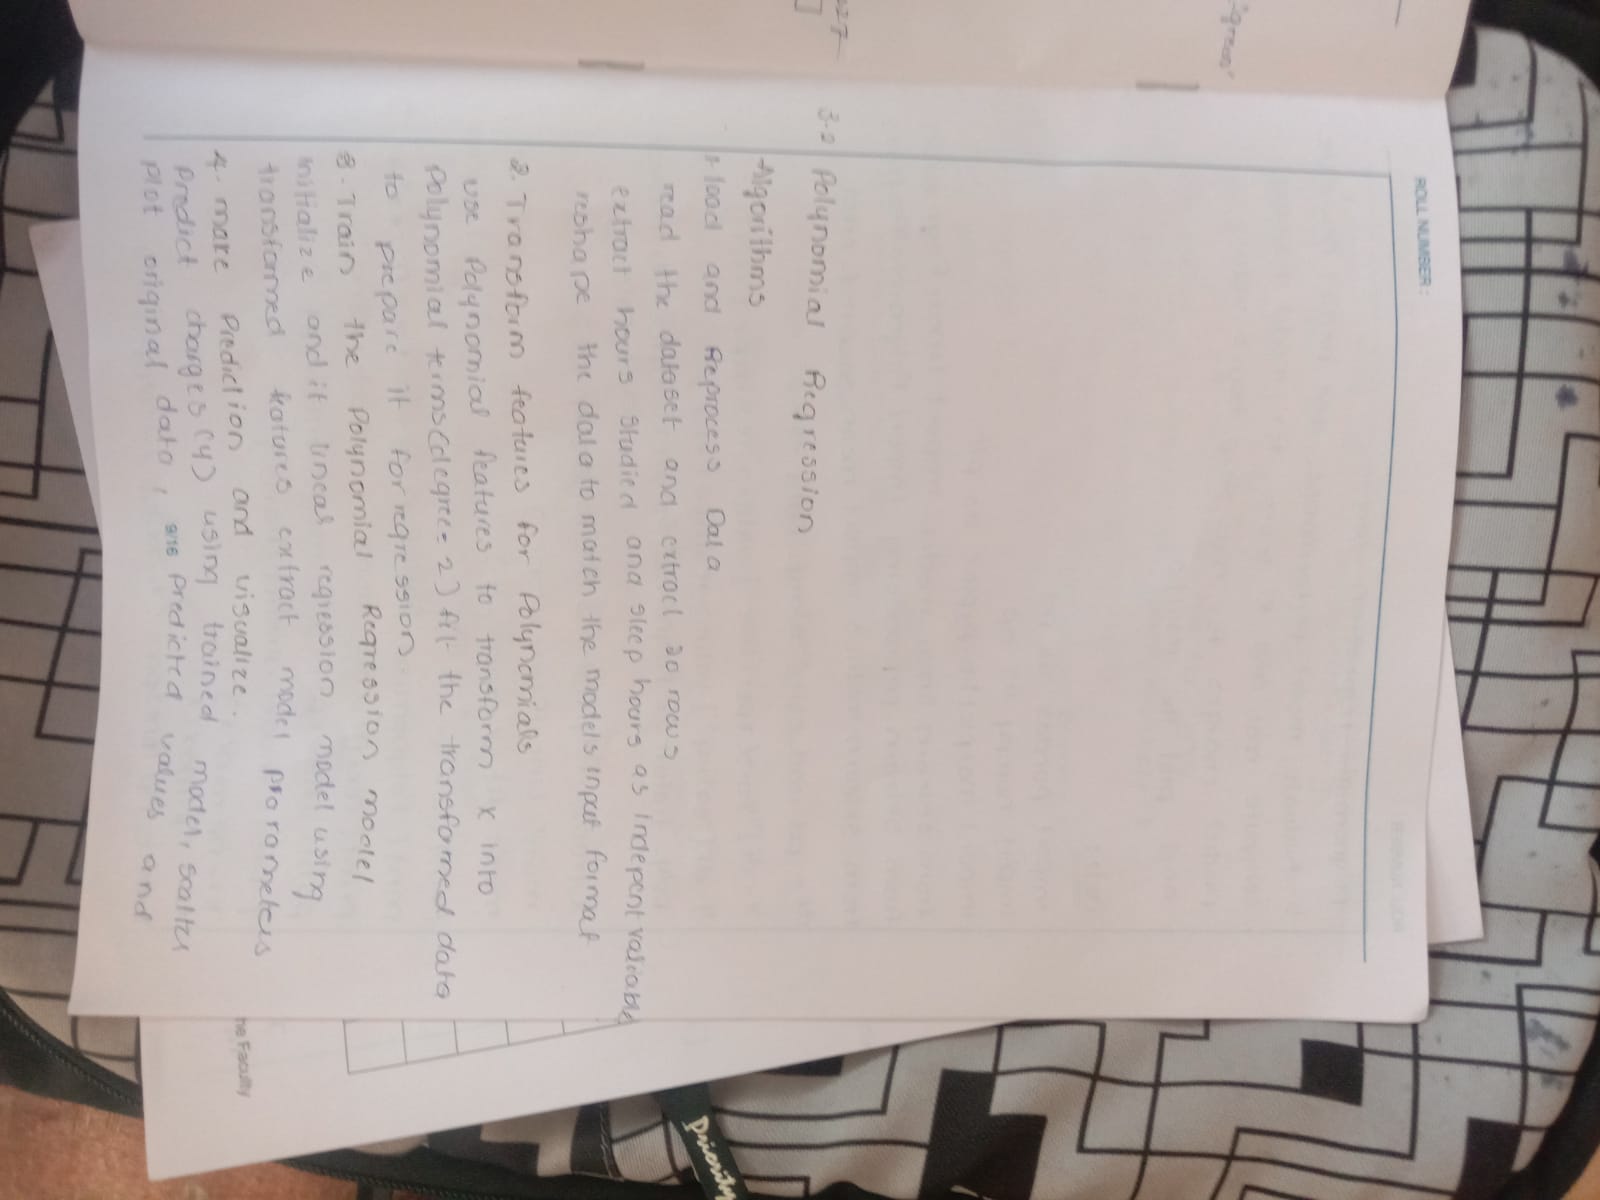 ROLL NUMBER :
3.2 Polynomial Regression
Algorithms
1. load and Preprocess Data
read the dataset and extract 20 rows
extract hours studied and sleep hours as indepent variable
reshape the data to match the models input format
2. Transform features for Polynomials
use Polynomial features to transform x into
Polynomial terms (degree = 2) fit the transformed data
to prepare it for regression.
3. Train the Polynomial Regression model
initialize and it lineal regression model using
transformed features, extract model parameters
4. make Prediction and visualize.
Predict charges (y) using trained model, scatter
plot original data, predicted values and
9/16
he Fraculty
Priority